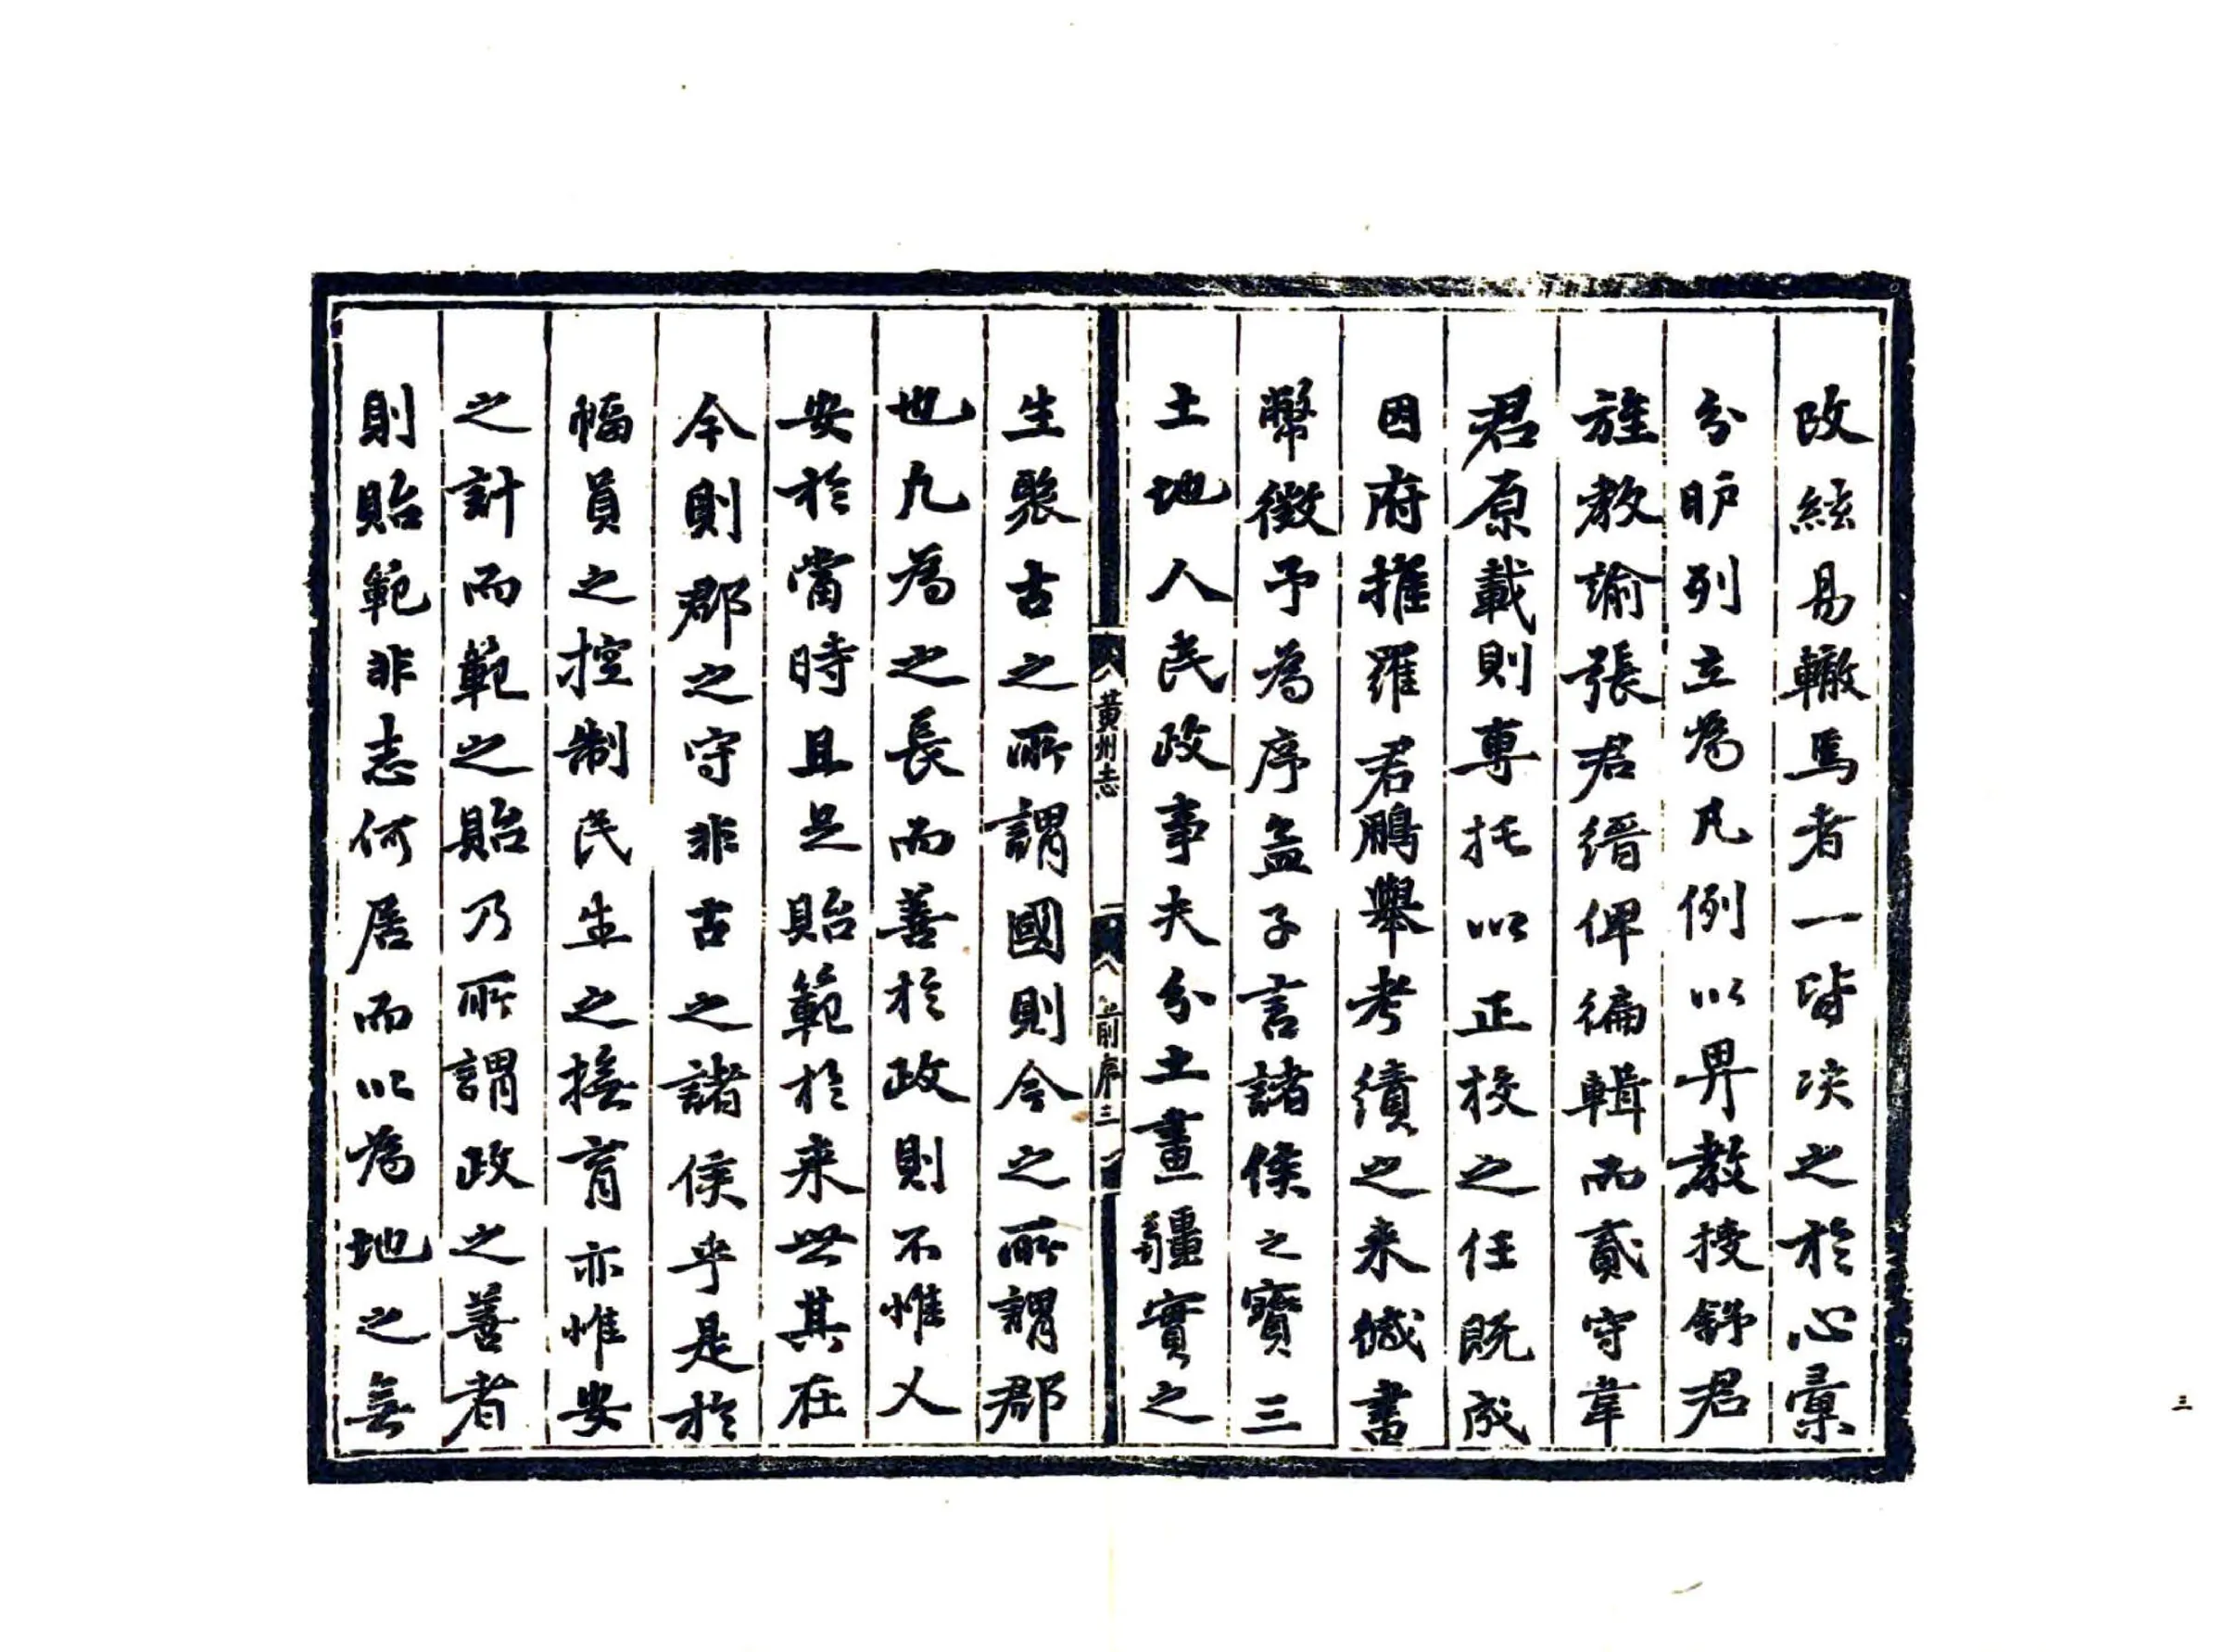 改絃易轍焉者一皆决之於心彚
分胪列立為凡例以畀教授舒君
旌教諭張君縉俾徧輯而貳守韋
君原載則專托以正校之任既成
因府推羅君鵬舉考績之来緘書
幣徵予為序孟子言諸侯之寳三
土地人民政事夫分土畫疆實之
黄州志
前序
三
生聚古之所謂國則今之所謂郡
也凢為之長而善於政則不惟乂
安於當時且足貽範於来世其在
今則郡之守非古之諸侯乎是於
幅員之控制民生之撫育亦惟安
之計而範之貽乃所謂政之善者
則貽範非志何居而以為地之無
三